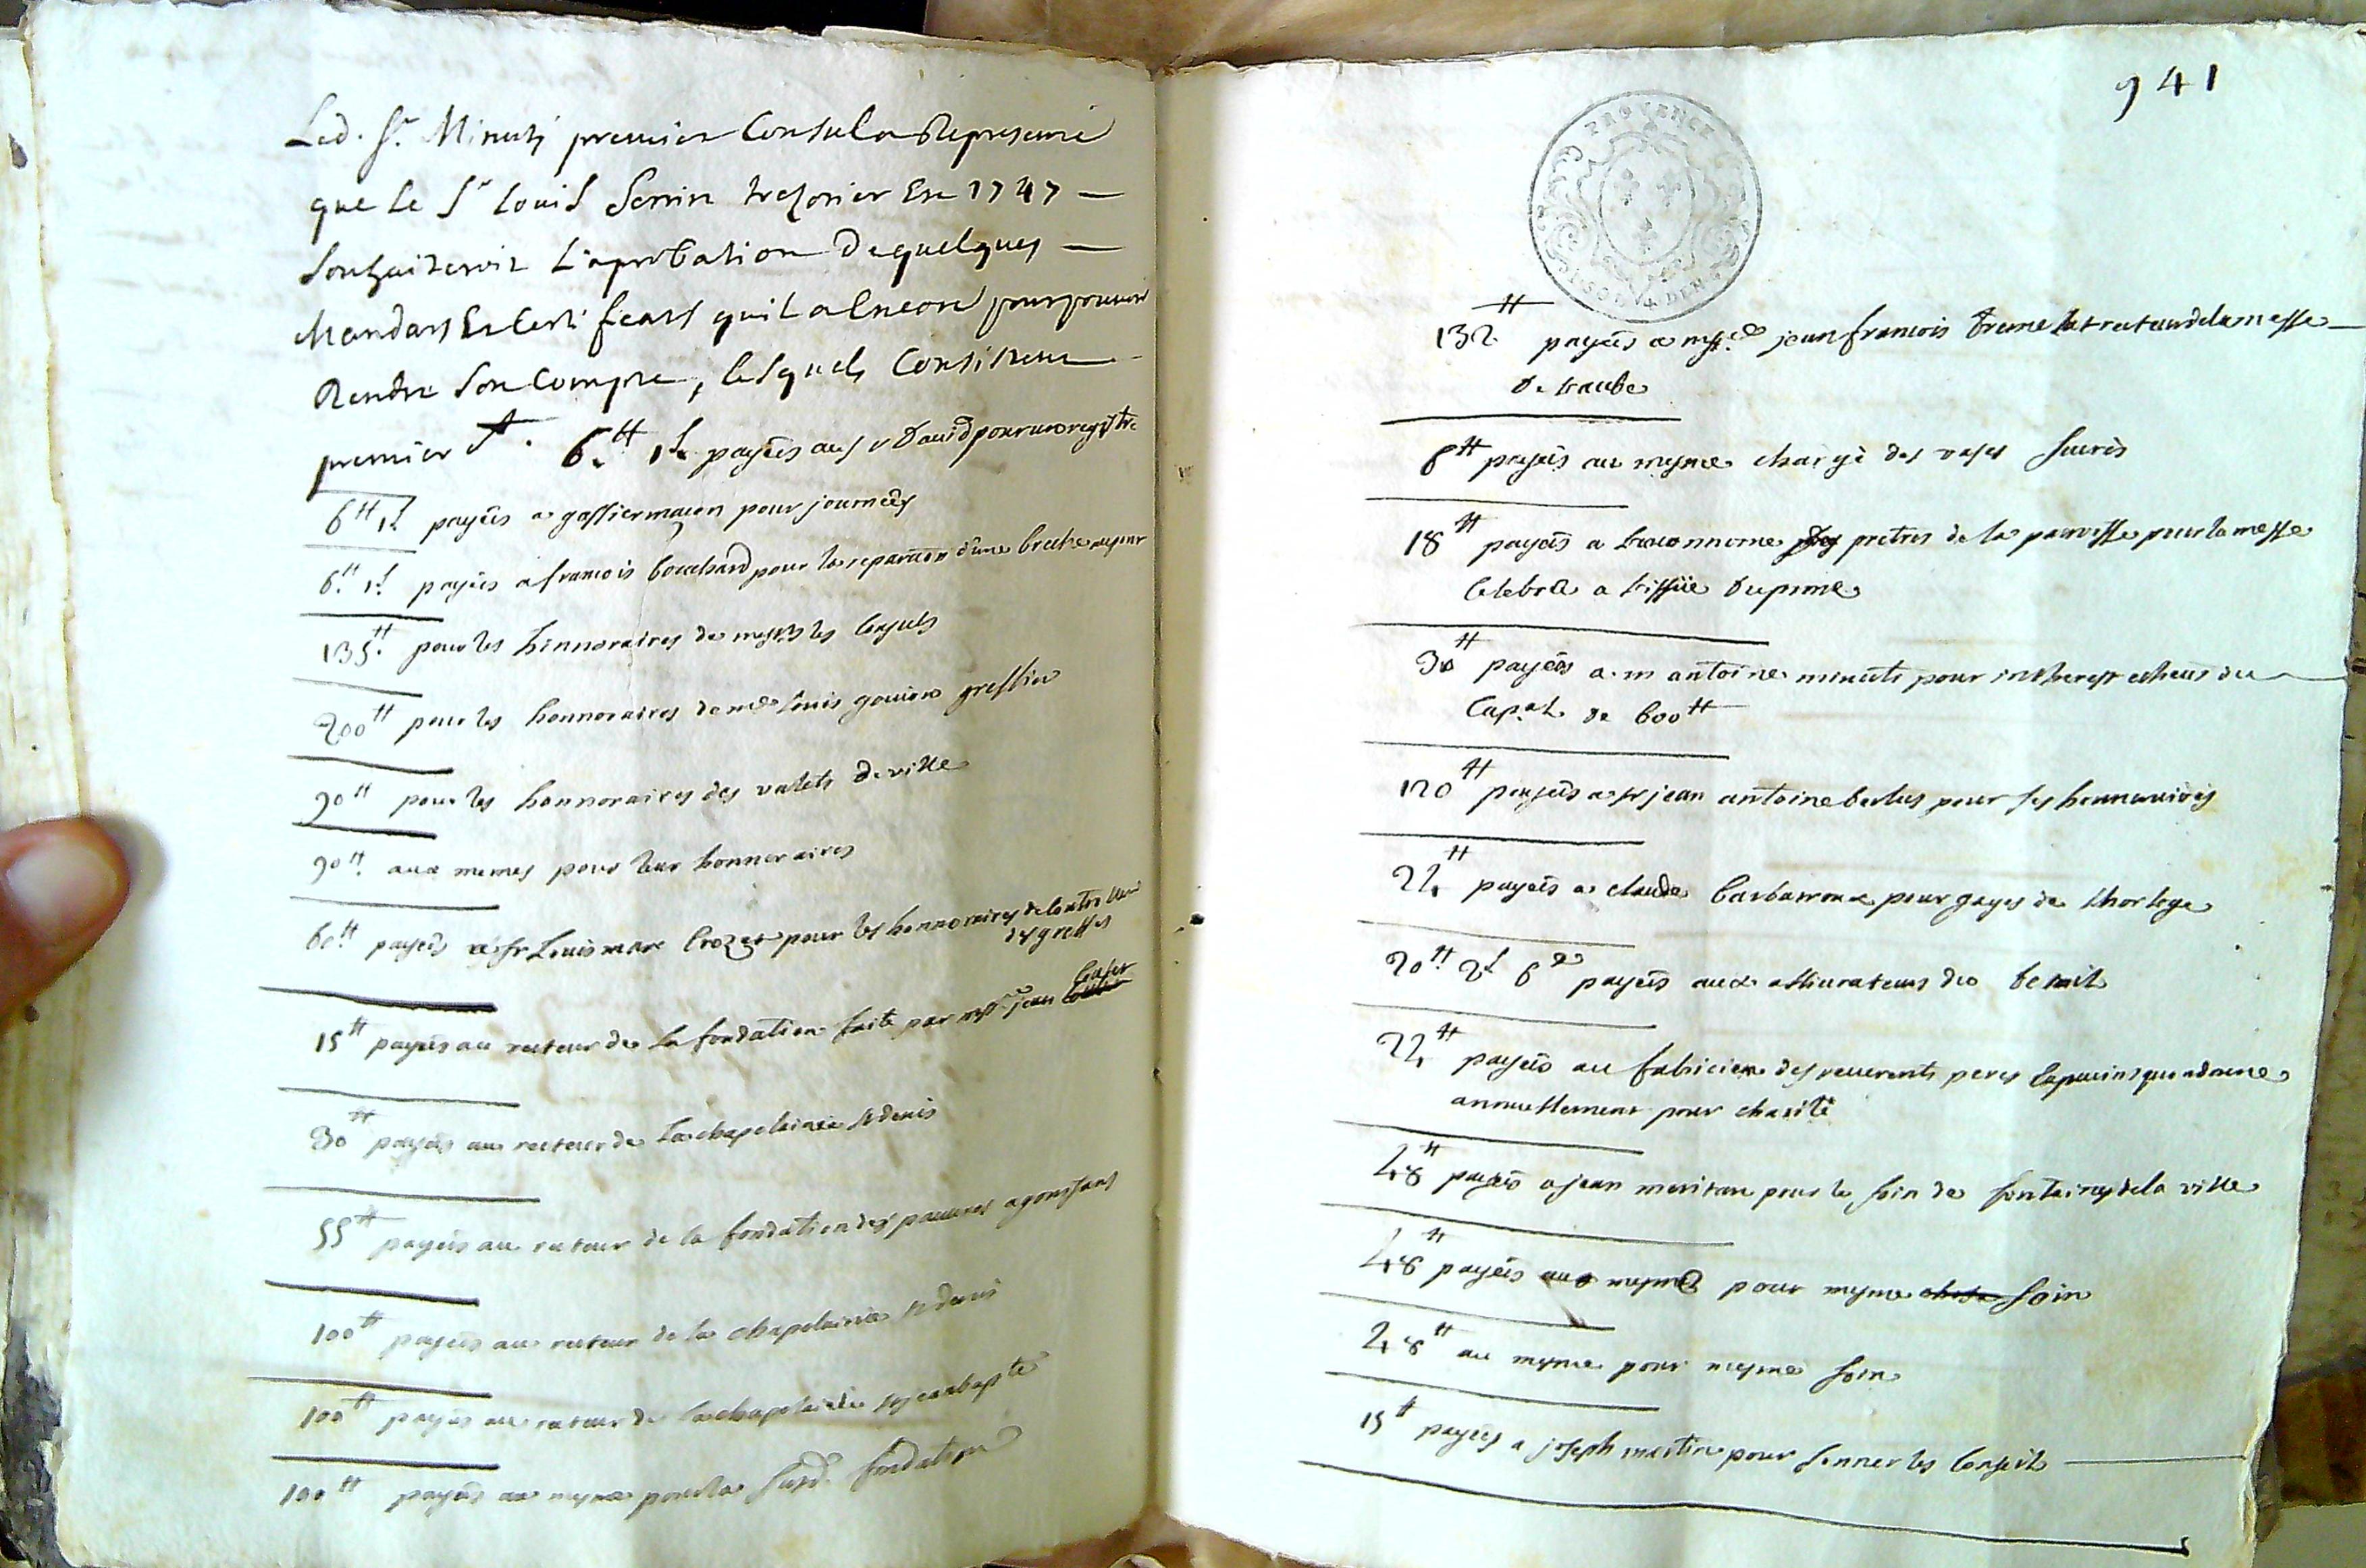 Led. Sr. Minuty premier Consul a Represené
que Le Sr Louis Serrin trezorier En 1747 —
Souhaiteroit L'aprobation De quelques —
Mandats Et Certificats quil a Encore pour pouvoir
Rendre Son Compte, lesquels Consistent
premier t. 6.tt 1s payées au sr David pour un registre
6tt 1s payées a gassier maçon pour journées
6.tt 1s payées a francois bouchard pour la reparation d'une breche
135.tt pour les honnoraires de messrs les Consuls
200tt pour les honnoraires de me Louis gouion greffier
90tt pour les honnoraires des valets de ville
90tt. aux memes pour leur honnoraires
60.tt payées a sr Louis marc Crozet pour les honnoraires de Controlleur
des greffes
15tt payées au recteur de la fondation faite par mre jean
30tt payées au recteur de la chapelainie st denis
55tt payées au recteur de la fondation des pauvres agonisans
100tt payées au recteur de la chapelainie st denis
100tt payées au recteur de la chapelainie st jean bapte
100tt payées au mesme pour la susd. fondation
941
PROVENCE
4 DEN
132tt payées a messre jean francois breme recteur de la messe
de l'aube
8tt payées au mesme chargé des vases sacrés
18tt payées a pretres de la parroisse pour la messe
Celebrée a l'issüe du prone
30tt payées a m antoine minuti pour intherest echeus du
Capal de 600tt
120tt payées a sr jean antoine bertus pour ses honnoraires
24tt payées a claude barbarroux pour gages de l'horloge
20tt. 2s 6d payées aux affieurateurs du betail
24tt payées au fabricien des reverents peres Capucins que a donne
annuellement pour charité
48tt payées a jean meritan pour le soin de fontaines de la ville
48tt payées au mesme pour mesme soin
48tt au mesme pour mesme soin
15tt payées a joseph martin pour sonner les Conseils